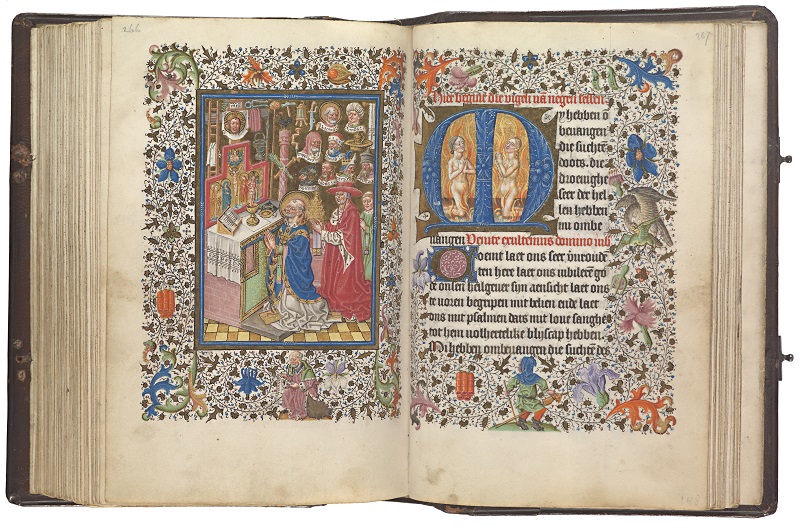 266
267
Hier begint die vigeli vā negen lessen
My hebben ō
beuangen
die suchtē
doots. die
droeuighe
seer der hel
len hebben
mi ombe
uangen Venite exultemus domino iub
Coemt laet ons seer vroude
ten here laet ons iubilerē go
de onsen helgeuer syn aensicht laet ons
te uoren begripen mit belien ende laet
ons mit psalmen dats mit loue sanghe
tot hem volhertelike blyscap hebben.
Mi hebben ombeuangen die suchtē des